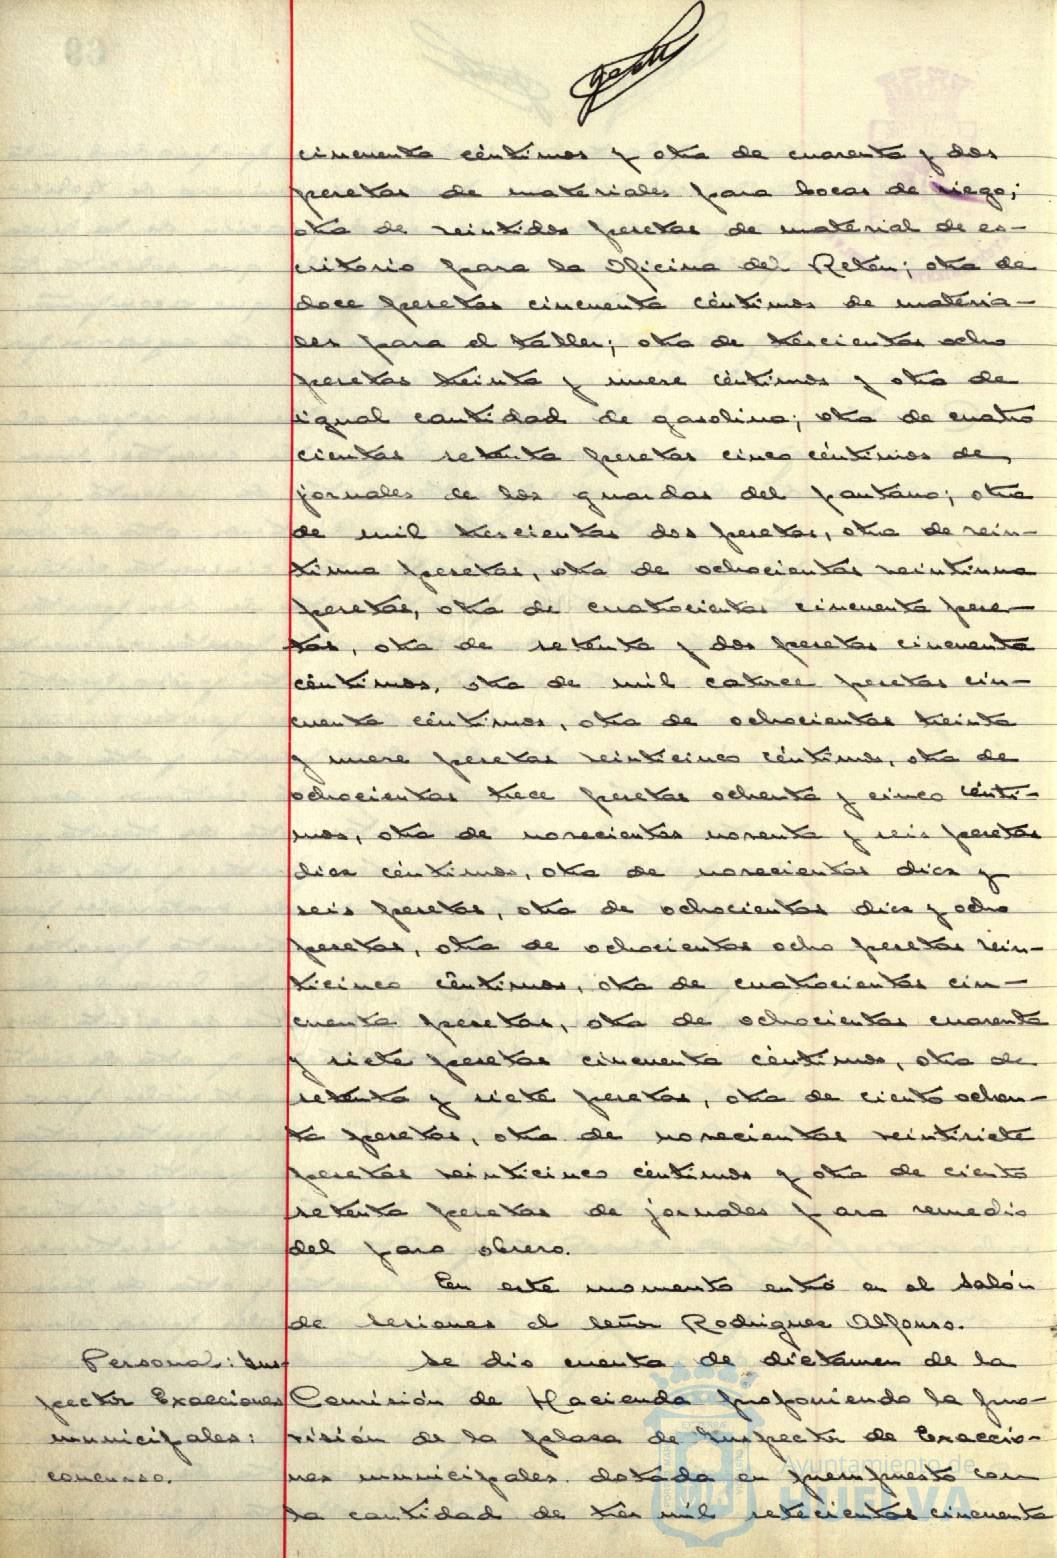 cincuenta céntimos y otra de cuarenta y dos
pesetas de materiales para bocas de riego;
otra de veintidos pesetas de material de es-
critorio para la Oficina del Reten; otra de
doce pesetas cincuenta céntimos de materia-
les para el taller; otra de trescientas ocho
pesetas treinta y nueve céntimos y otra de
igual cantidad de gasolina; otra de cuatro
cientas setenta pesetas cinco céntimos de
jornales de los guardas del pantano; otra
de mil trescientas dos pesetas, otra de vein-
tiuna pesetas, otra de ochocientas veintiuna
pesetas, otra de cuatrocientas cincuenta pese-
tas, otra de setenta y dos pesetas cincuenta
céntimos, otra de mil catorce pesetas cin-
cuenta céntimos, otra de ochocientas treinta
y nueve pesetas veinticinco céntimos, otra de
ochocientas trece pesetas ochenta y cinco cénti-
mos, otra de novecientas noventa y seis pesetas
diez céntimos, otra de novecientas diez y
seis pesetas, otra de ochocientas diez y ocho
pesetas, otra de ochocientas ocho pesetas vein-
ticinco céntimos, otra de cuatrocientas cin-
cuenta pesetas, otra de ochocientas cuarenta
y siete pesetas cincuenta céntimos, otra de
setenta y siete pesetas, otra de ciento ochen-
ta pesetas, otra de novecientas veintisiete
pesetas veinticinco céntimos y otra de ciento
setenta pesetas de jornales para remedio
del paro obrero.
En este momento entró en el Salón
de sesiones el señor Rodriguez Alfonso.
Personal: Ins
pector Exacciones
municipales:
concurso.
Se dio cuenta de dictamen de la
Comisión de Hacienda proponiendo la pro-
visión de la plaza de Inspector de Exaccio-
nes municipales dotada en presupuesto con
la cantidad de tres mil setecientas cincuenta
Ayuntamiento de
HUELVA